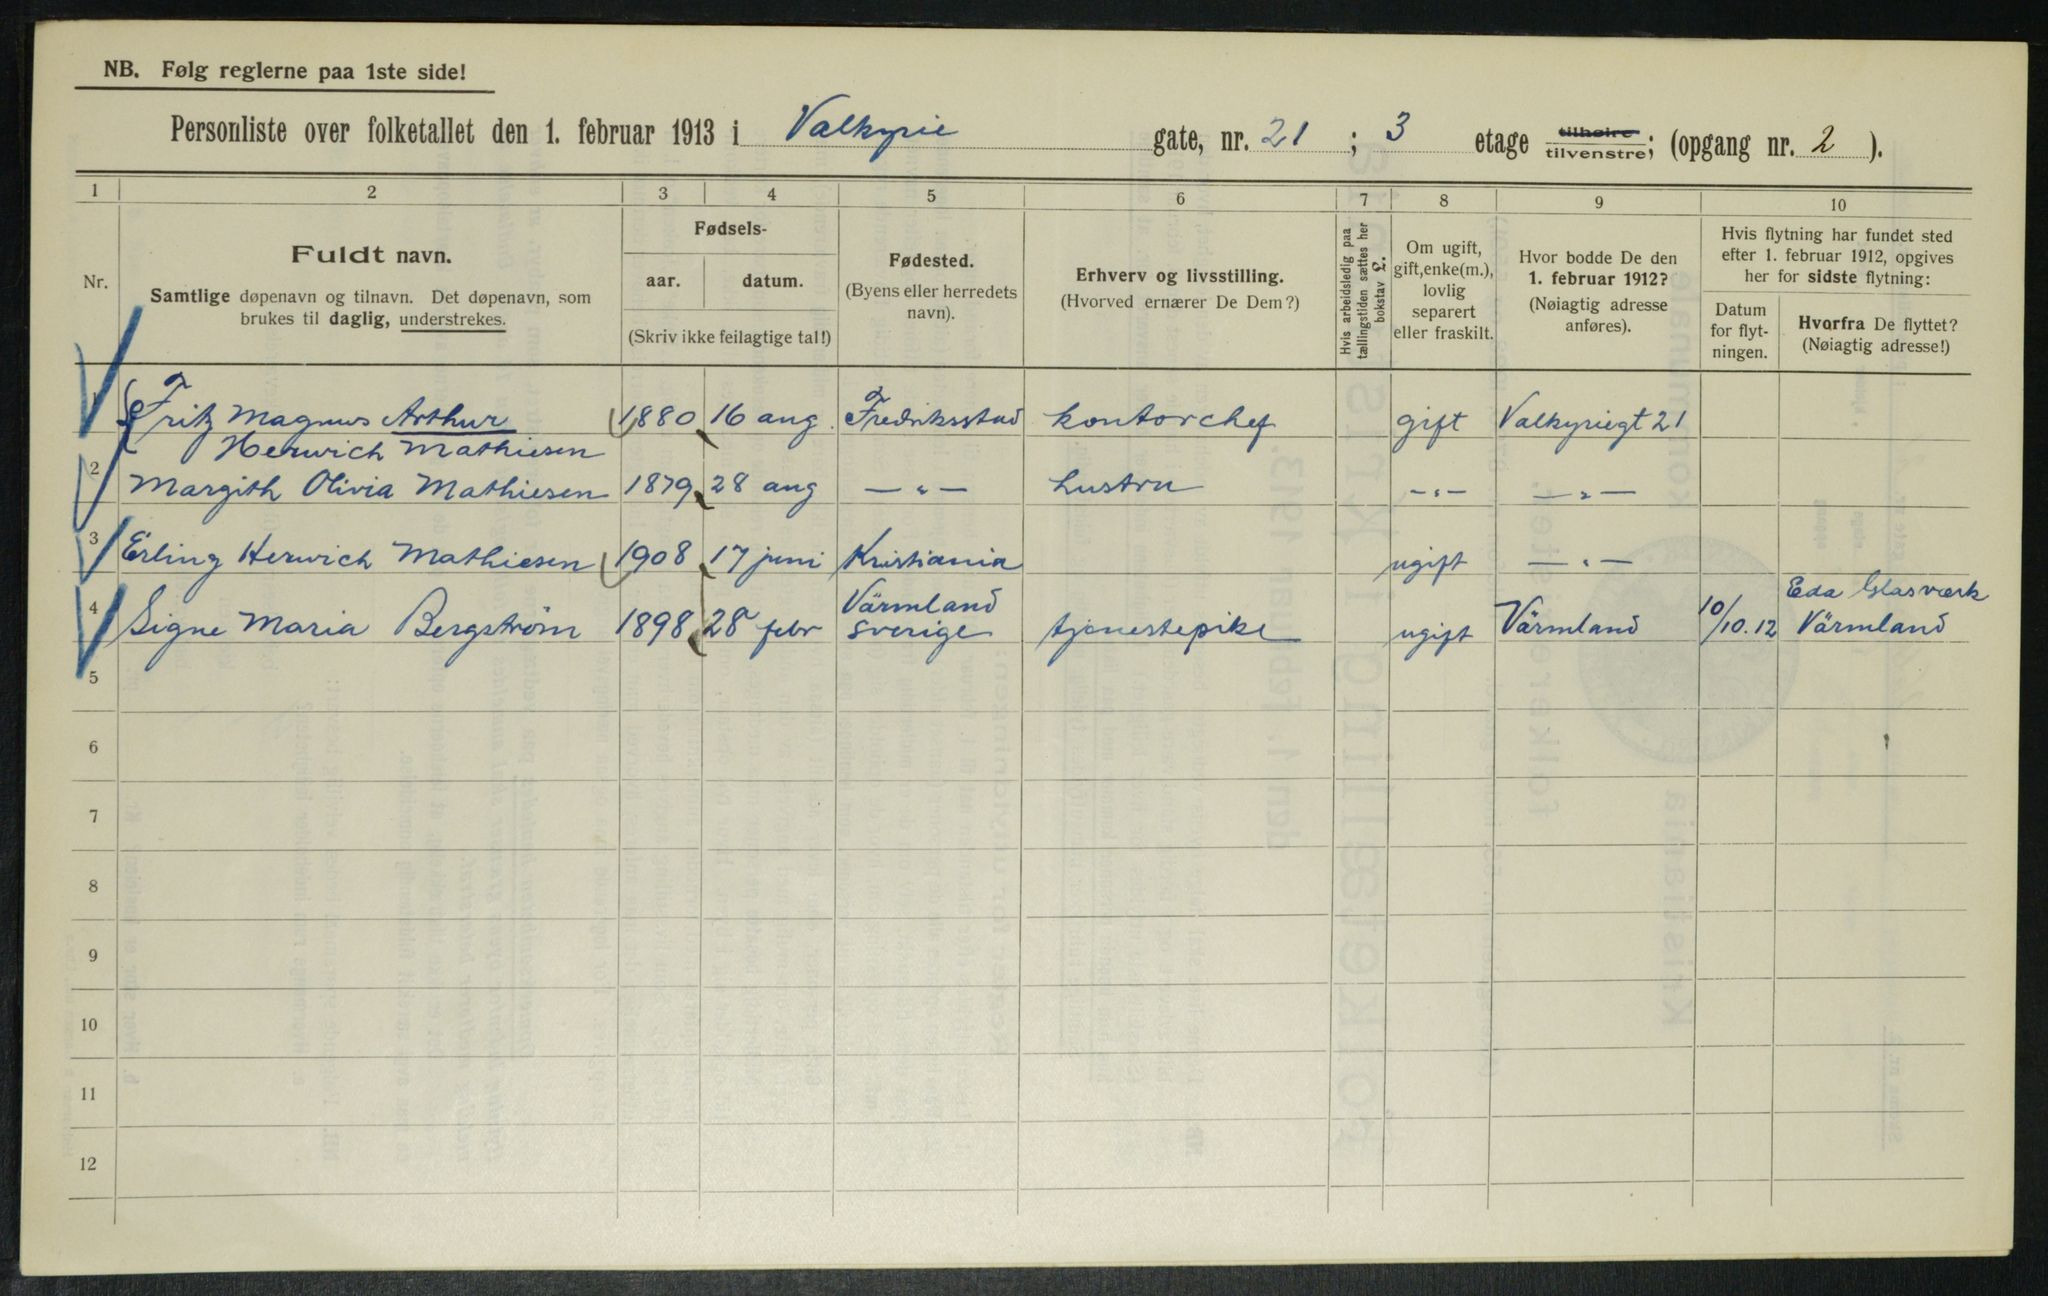 NB. Følg reglerne paa 1ste side!
Personliste over folketallet den 1. februar 1913 i Valkyrie gate, nr. 21 ; 3 etage tilhøire tilvenstre; (opgang nr. 2 ).
1 2 3 4 5 6 7 8 9 10
Nr.
Fuldt navn.
Samtlige døpenavn og tilnavn. Det døpenavn, som
brukes til daglig, understrekes.
Fødsels-
aar. datum.
(Skriv ikke feilagtige tal!)
Fødested.
(Byens eller herredets
navn).
Erhverv og livsstilling.
(Hvorved ernærer De Dem?)
Hvis arbeidsledig paa
tællingstiden sættes her
bokstav L.
Om ugift,
gift, enke(m.),
lovlig
separert
eller fraskilt.
Hvor bodde De den
1. februar 1912?
(Nøiagtig adresse
anføres).
Hvis flytning har fundet sted
efter 1. februar 1912, opgives
her for sidste flytning:
Datum
for flyt-
ningen.
Hvorfra De flyttet?
(Nøiagtig adresse!)
1 Fritz Magnus Arthur 1880 16 aug. Fredriksstad kontorchef gift Valkyriegt 21
Herwich Mathiesen
2 Margith Olivia Mathiesen 1879 28 aug — " — hustru — " — — " —
3 Erling Herwich Mathiesen 1908 17 juni Kristiania ugift — " —
4 Signe Maria Bergström 1898 28 febr Värmland
Sverige tjenestepike ugift Värmland 10/10.12 Eda Glasværk
Värmland
5
6
7
8
9
10
11
12